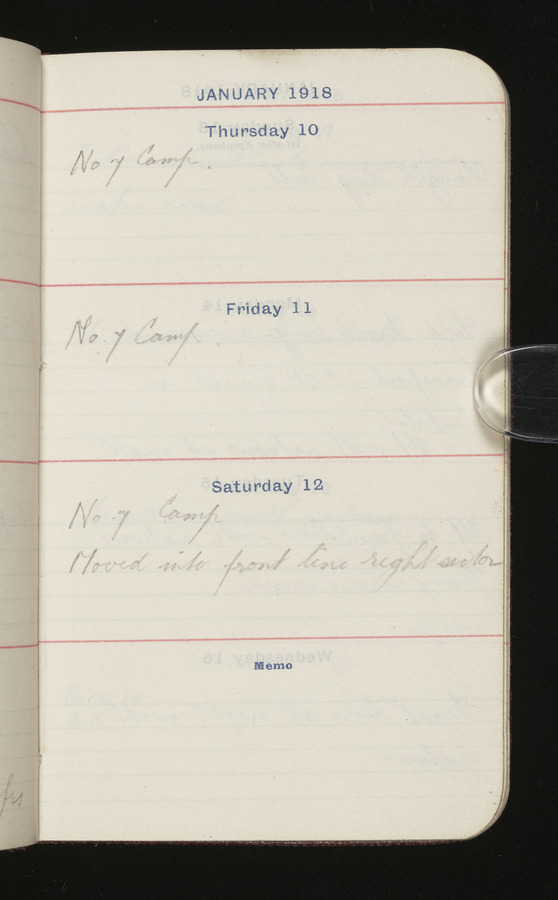 JANUARY 1918
Thursday 10
No 7 Camp.
Friday 11
No. 7 Camp.
Saturday 12
No 7 Camp
Moved into front line right sector
Memo